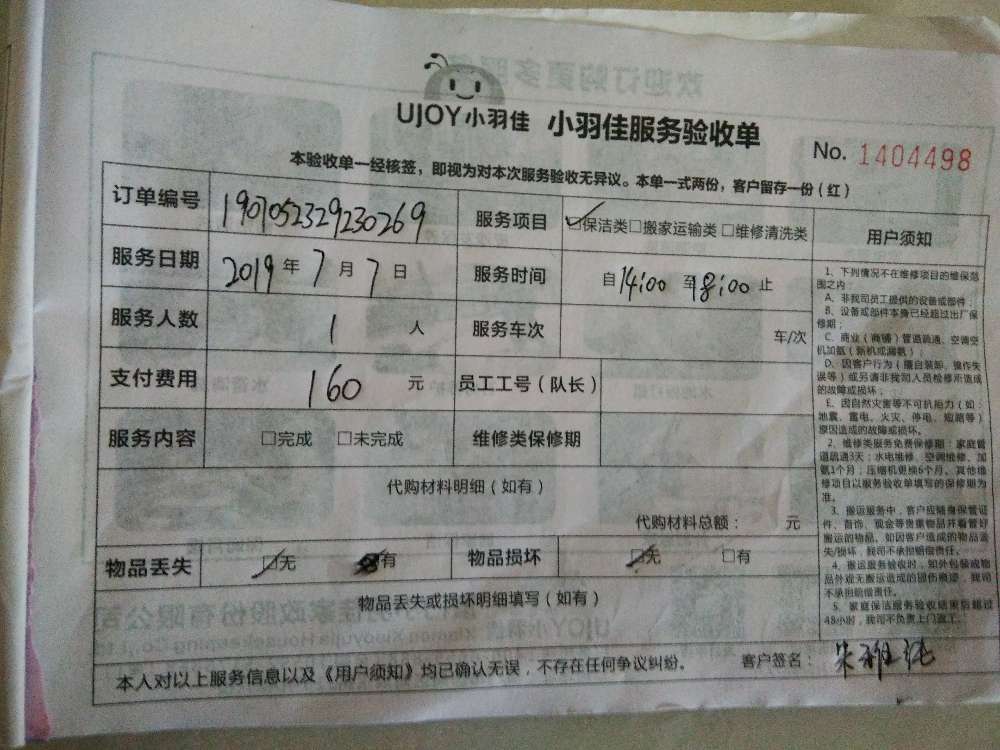 UJOY小羽佳 小羽佳服务验收单
No. 1404498
本验收单一经核签，即视为对本次服务验收无异议。本单一式两份，客户留存一份（红）
订单编号 1907052329230269 服务项目 ☑保洁类□搬家运输类□维修清洗类 用户须知
服务日期 2019年7月7日 服务时间 自14:00至18:00止
服务人数 1人 服务车次 车/次
支付费用 160元 员工工号（队长）
服务内容 □完成 □未完成 维修类保修期
代购材料明细（如有）
代购材料总额： 元
物品丢失 ☑无 有 物品损坏 ☑无 □有
物品丢失或损坏明细填写（如有）
本人对以上服务信息以及《用户须知》均已确认无误，不存在任何争议纠纷。 客户签名：
1、下列情况不在维修项目的维保范
围之内：
A、非我司员工提供的设备或部件；
B、设备或部件本身已经超过出厂保
修期；
C、商业（商铺）管道疏通、空调空
机加氨（新机或漏氨）；
D、因客户行为（擅自装卸、操作失
误等）或另请非我司人员检修所造成
的故障或损坏；
E、因自然灾害等不可抗拒力（如：
地震、雷电、火灾、停电、短路等）
原因造成的故障或损坏。
2、维修类服务免费保修期：家庭管
道疏通3天；水电维修、空调维修、加
氨1个月；压缩机更换6个月。其他维
修项目以服务验收单填写的保修期为
准。
3、搬运服务中，客户应随身保管证
件、首饰、现金等贵重物品并看管好
搬运的物品，如因客户造成的物品丢
失/损坏，我司不承担赔偿责任。
4、搬运服务验收时，如外包装或物
品外观无搬运造成的损伤痕迹，我司
不承担赔偿责任。
5、家庭保洁服务验收结束后超过
48小时，我司不负责上门返工。